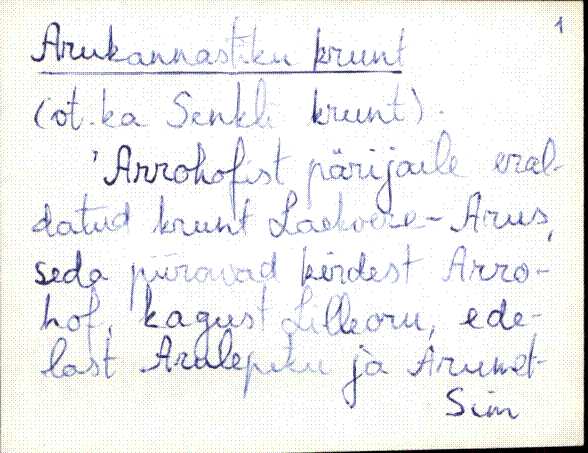 1
Arukannastiku krunt
(vt. ka Senkli krunt).
'Arrohofist pärijaile eral-
datud krunt Laekvere-Arus,
seda piiravad kirdest Arro-
hof, kagust Lilleoru, ede-
last Arulepiku ja Arumet-
Sim